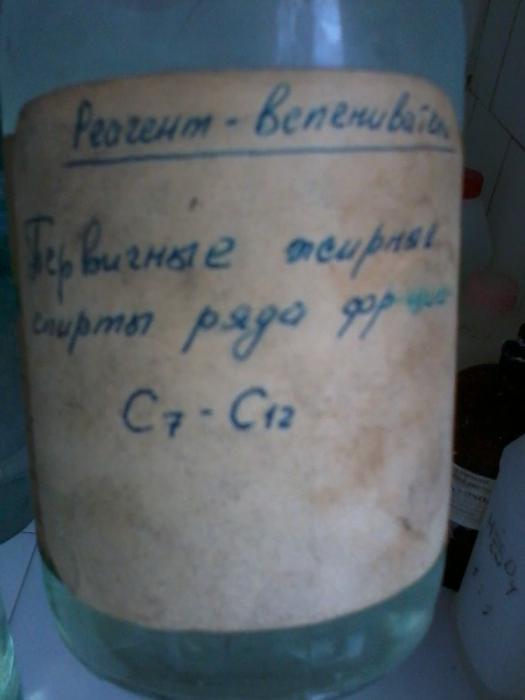 Реагент - Вспениватель
Первичные жирные
спирты ряда фр
C7 - C12